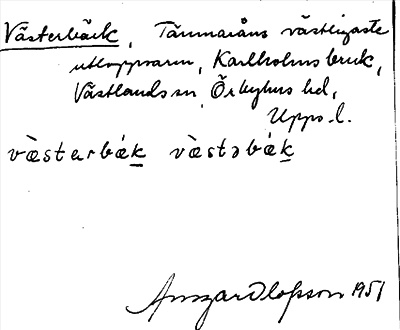 Västerbäck, Tämnaråns västligaste
utloppsarm, Karlholms bruk,
Västlands sn, Örbyhus hd,
Upps. l.
væ̀starbǽk væ̀stəbǽk
Ansgar Olofsson 1951